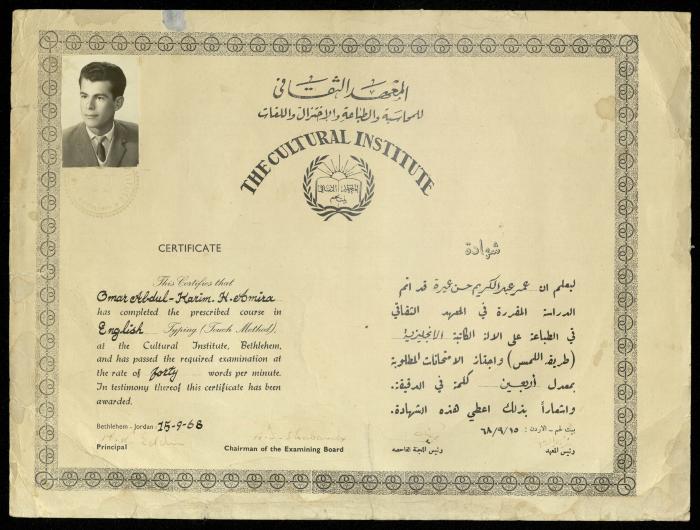 المعهد الثقافي
للمحاسبة والطباعة والاختزال واللغات
THE CULTURAL INSTITUTE
المعهد الثقافي
بيت لحم
CERTIFICATE
This Certifies that
Omar Abdul-Karim. H. Amira
has completed the prescribed course in
English Typing (Touch Method),
at the Cultural Institute, Bethlehem,
and has passed the required examination at
the rate of forty words per minute.
In testimony thereof this certificate has been
awarded.
Bethlehem - Jordan 15-9-68
Principal
Chairman of the Examining Board
شهادة
ليعلم ان عمر عبد الكريم حسن عميرة قد اتم
الدراسة المقررة في المعهد الثقافي
في الطباعة على الالة الكاتبة الانجليزية
(طريقة اللمس) واجتاز الامتحانات المطلوبة
بمعدل أربعين كلمة في الدقيقة.
واشعاراً بذلك اعطي هذه الشهادة.
بيت لحم - الاردن : ٦٨/٩/١٥
رئيس اللجنة الفاحصة
رئيس المعهد